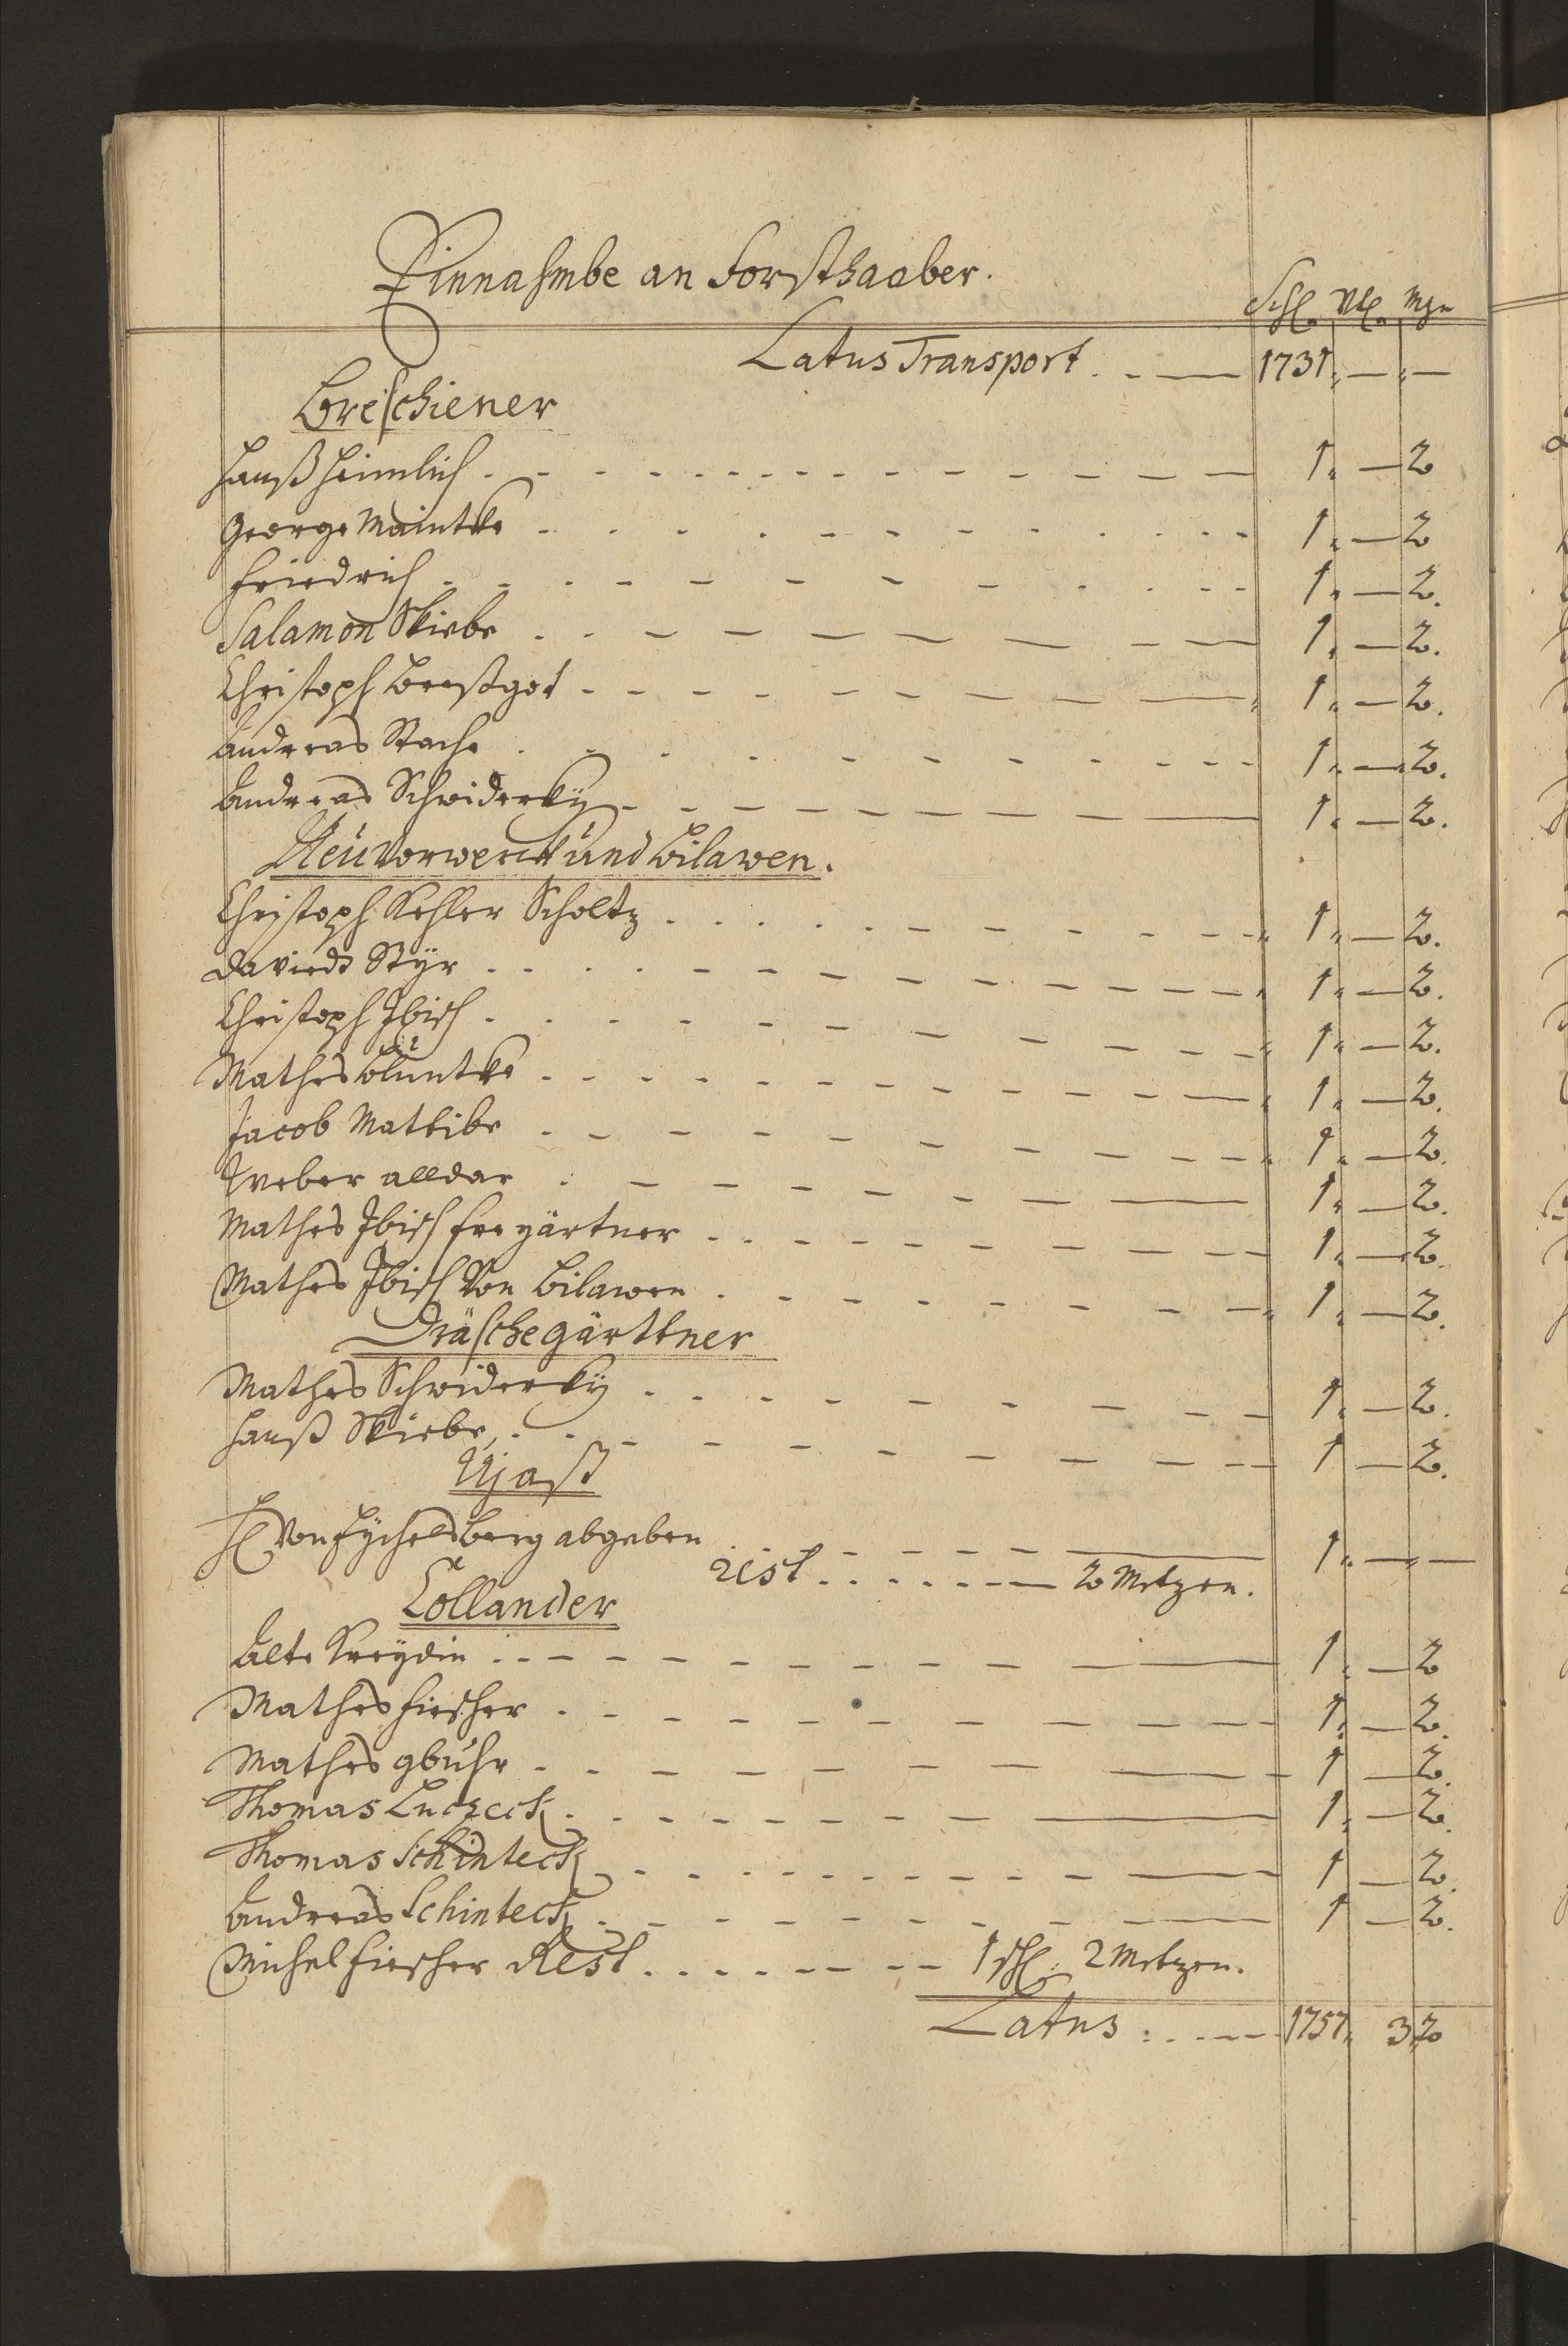 Einnahmbe an Forsthaaber.
Schl. Vtl. Mzn
Latus Transport . - — 1731 „ — „ —
Breschiener
Hanß Heimlich - - - 1 „ — 2
George Maintke - - - 1 „ — 2
Friedrich - - - 1 „ — 2.
Salamon Skiebe - - - 1 „ — 2.
Christoph - - - 1 „ — 2.
Andreas Stache - - - 1 „ — 2.
Andreas Schwiderky - - - 1 „ — 2.
Neuvorwerck und Bilawen.
Christoph Kehler Scholtz - - - 1 „ — 2.
Daviedt Styr - - - 1 „ — 2.
Christoph Ibisch - - - 1 „ — 2.
Mathes - - - 1 „ — 2.
Jacob Mattibe - - - 1 „ — 2.
Weber alldar - - - 1 „ — 2.
Mathes Ibisch freygärtner - - - 1 „ — 2.
Mathes Ibisch Von Bilawen - - - 1 „ — 2.
Dräschegärttner
Mathes Schwiderky - - - 1 „ — 2.
Hanß Skiebe, - - - 1 — 2.
Ujast
H. Von abgeben - - - 1 „ — „ —
rest - - - 2 Metzen.
Collander
Alte Kreydin - - - 1 „ — 2
Mathes Fiescher - - - 1 „ — 2.
Mathes gbuhr - - - 1 — 2.
Thomas Luczeck - - - 1 „ — 2.
Thomas Schinteck - - - 1 — 2.
Andreas Schinteck - - - 1 — 2.
Michel Fiescher Rest - - - 1 schl. 2 Metzen.
Latus - - - 1757 „ 3 „ 2